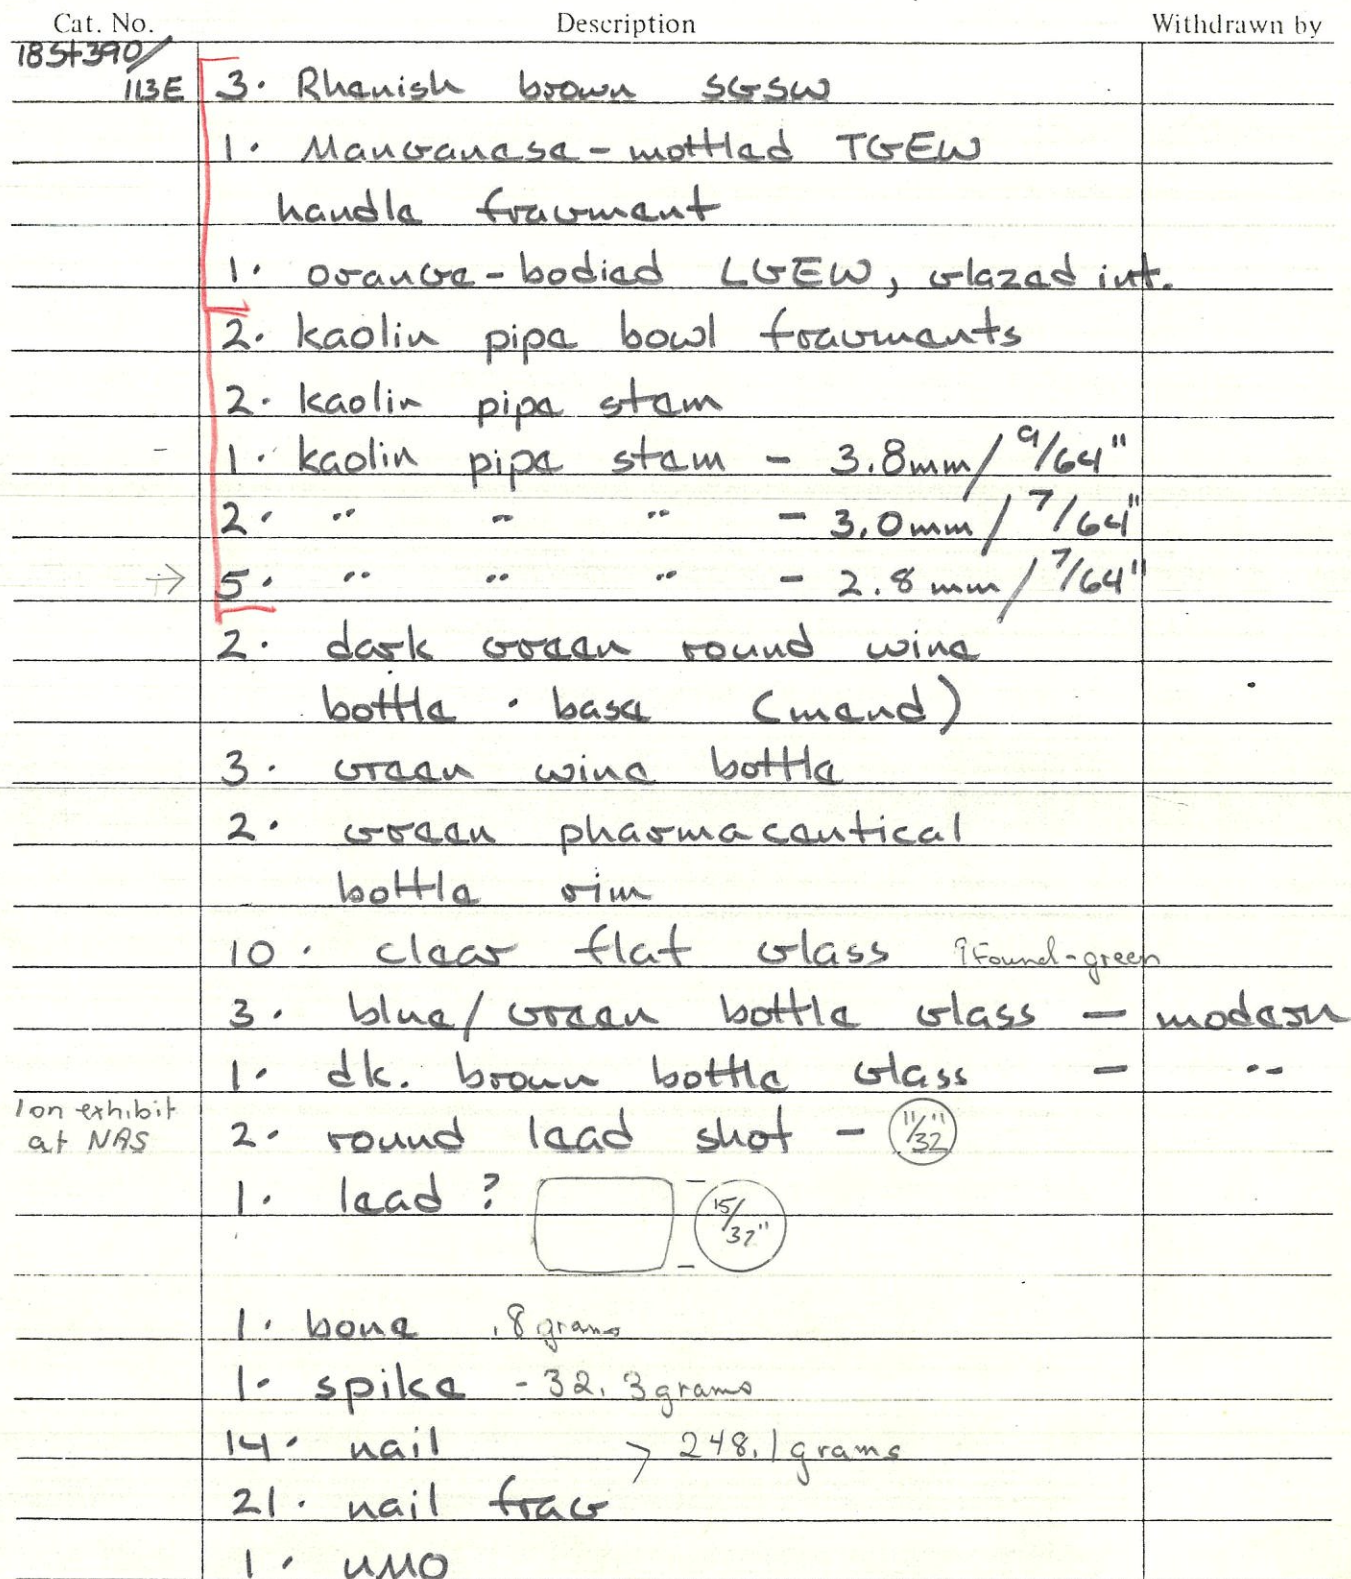 Cat. No. Description Withdrawn by
18St390/
113E 3. Rhenish brown SGSW
1. Manganese-mottled TGEW
handle fragment
1. orange-bodied LGEW, glazed int.
2. kaolin pipe bowl fragments
2. kaolin pipe stem
1. kaolin pipe stem - 3.8mm/ 9/64"
2. " " " - 3.0mm / 7/64"
→ 5. " " " - 2.8mm/ 7/64"
2. dark green round wine
bottle · base (mend)
3. green wine bottle
2. green pharmaceutical
bottle rim
10. clear flat glass 9 found-green
3. blue/green bottle glass - modern
1. dk. brown bottle glass - "
1 on exhibit
at NAS 2. round lead shot - 11/32"
1. lead? 15/32"
1. bone .8 grams
1. spike - 32.3 grams
14. nail > 248.1 grams
21. nail frag
1. UMO